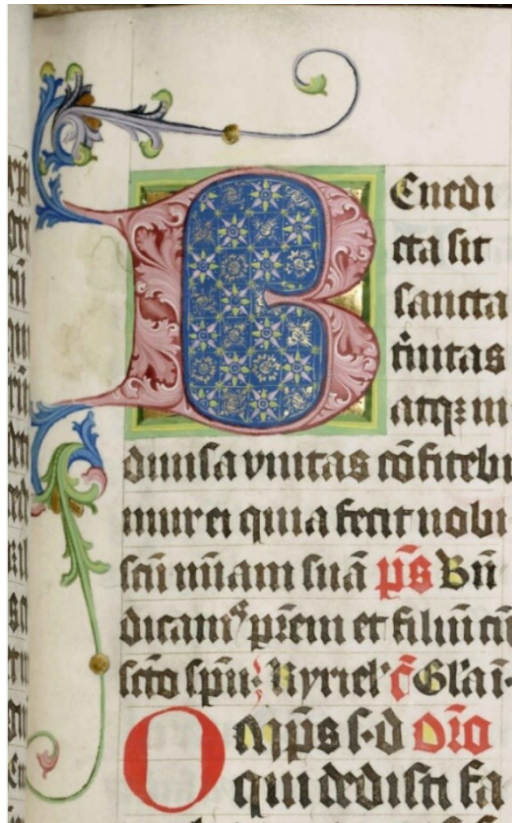 Benedi
cta sit
sancta
t̄nitas
atq; in
diuisa vnitas cōfitebi
mur ei quia fecit nobi
scū mi̅am suā p̄s Bn̄
dicamꝰ p̄rem et filiū cū
scto sp̄u: Kyriel' c̄ Gl'a i-
O m̄ps s·d Or̄o
qui dedisti fa